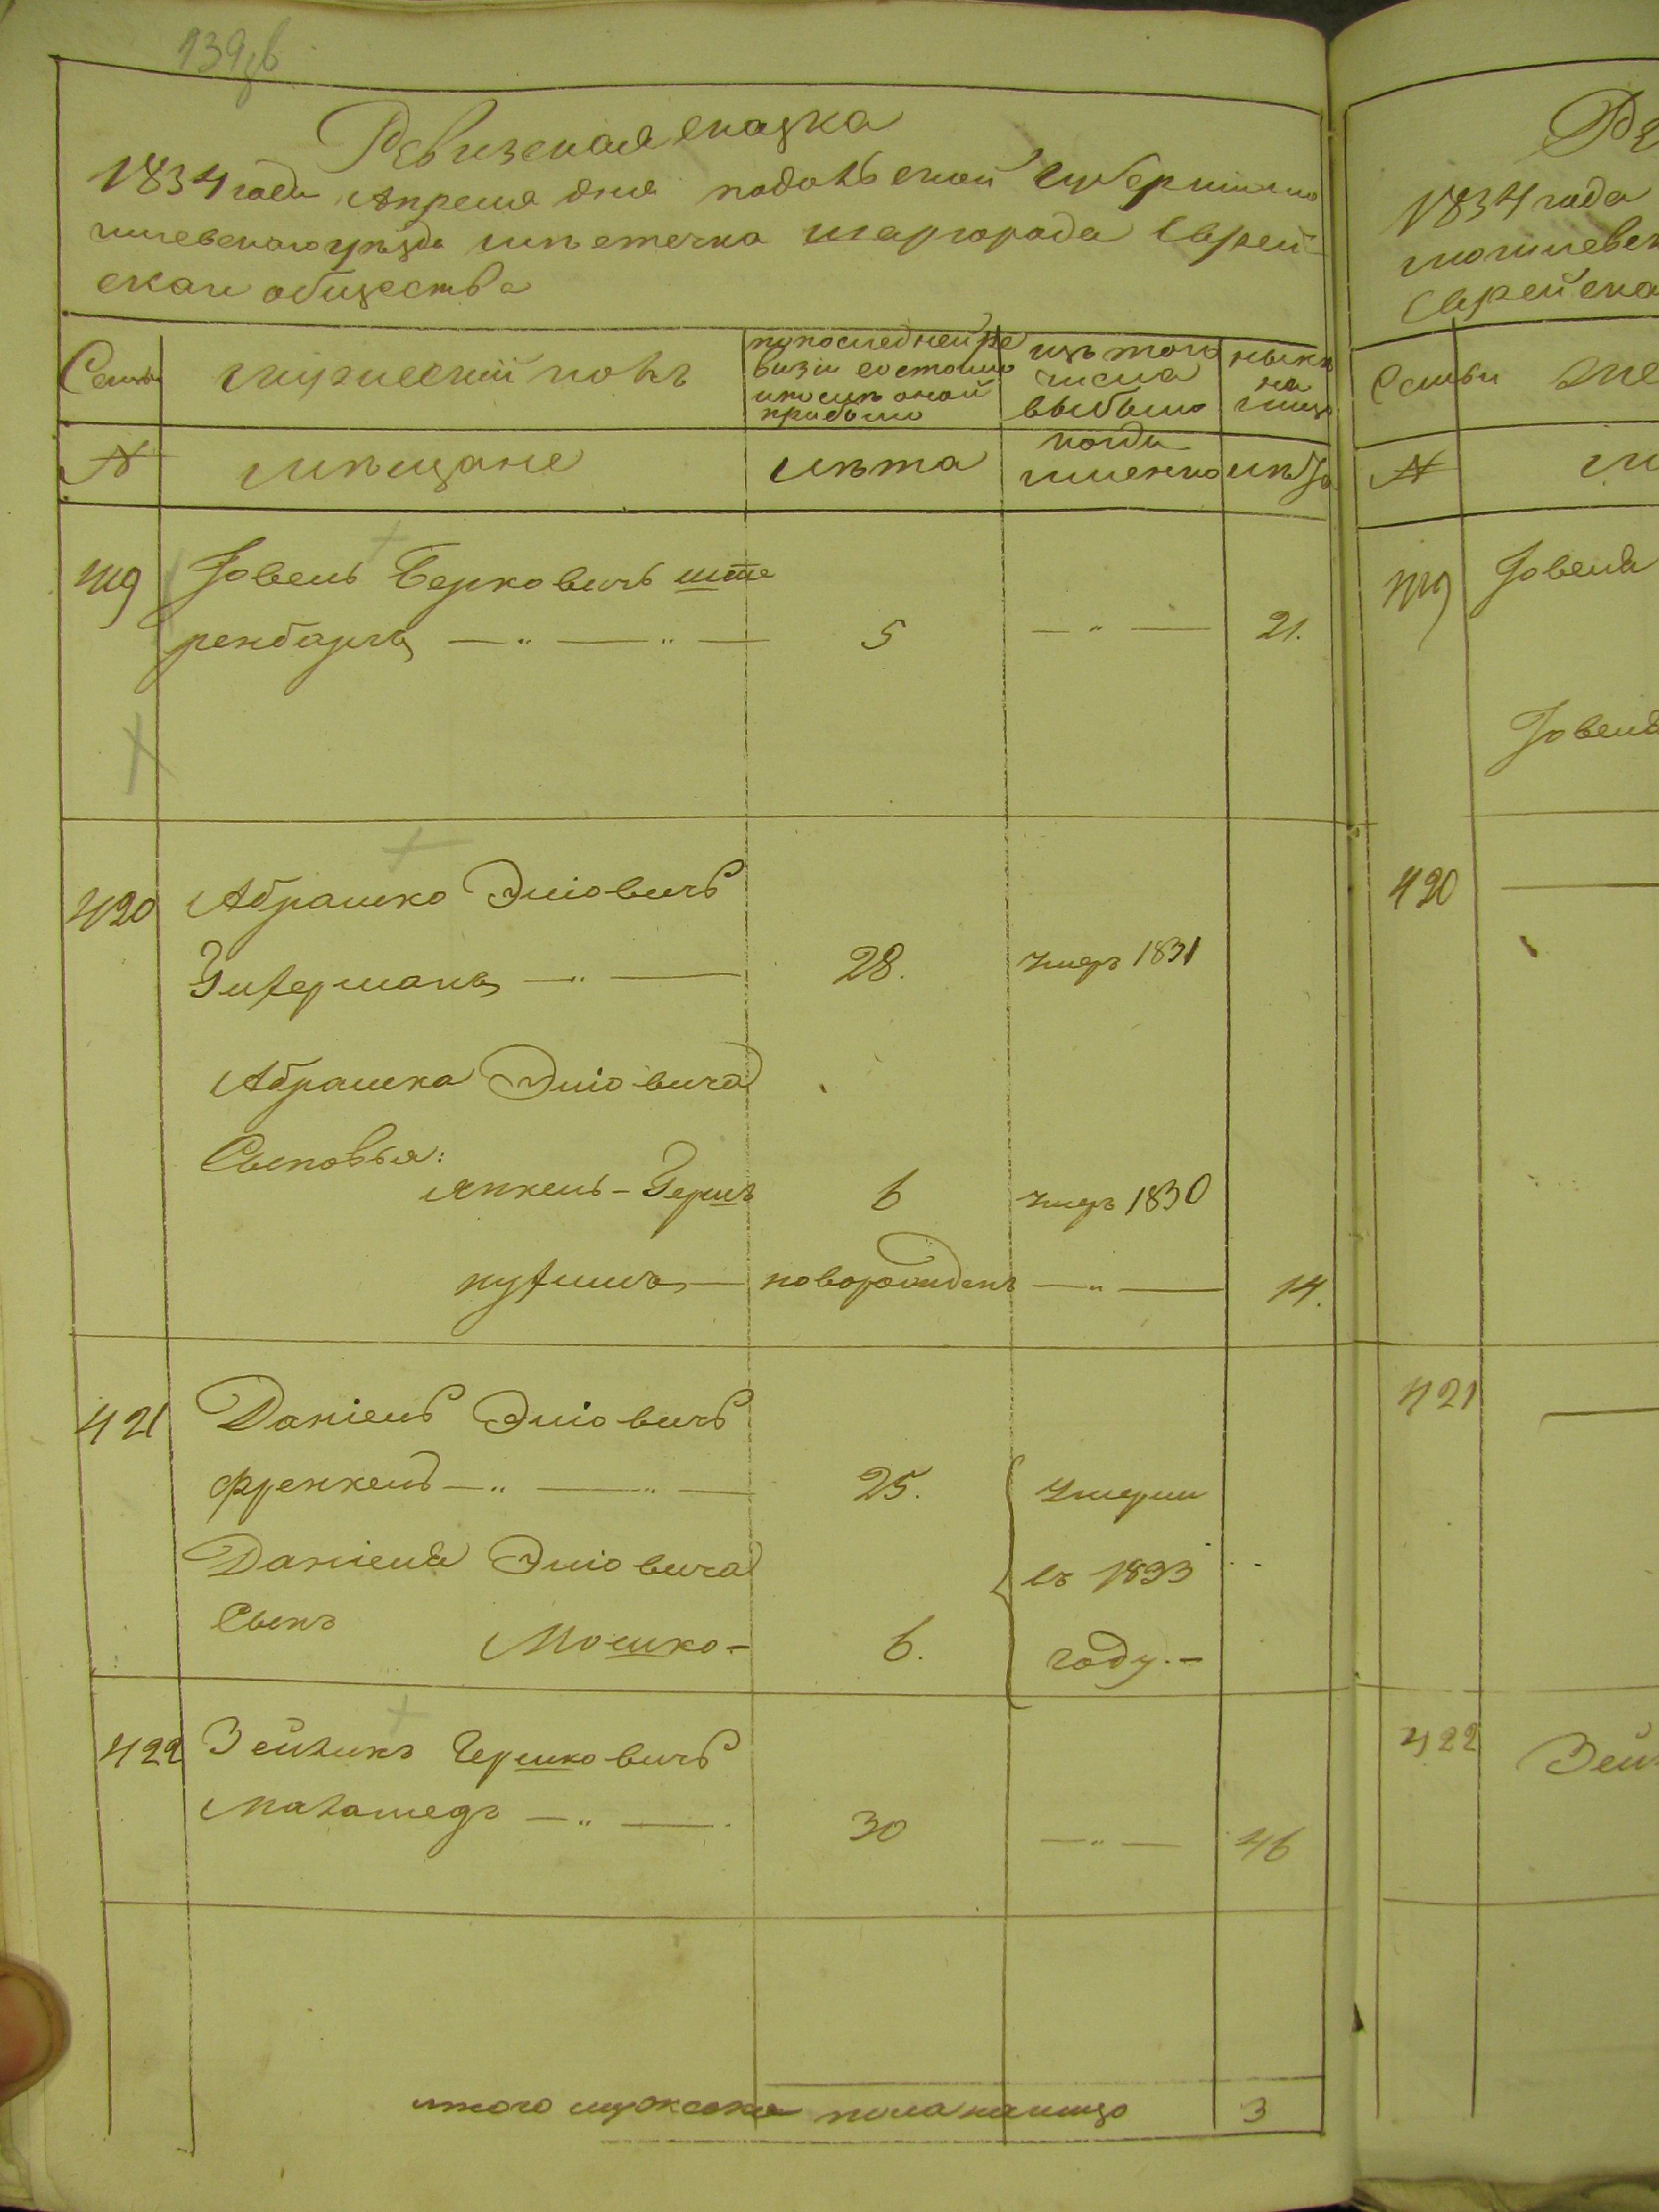 139об
Ревизская сказка
1834 года Апреля дня подольской Губернии мо
гилевского уѣзда мѣстечка шаргорода Еврей
скаго общества
Семьи
мужеский полъ
по последней ре
визіи состояло
и после оной
прибыло
изъ того
числа
выбыло
нынѣ
на
лицо
№
мѣщане
лѣта
когда
именно
лѣта
419
Іовель Берковичъ ште
ренбаргъ
5
21.
420
Абрашко Эліовичъ
28.
умеръ 1831
Абрашка Эліовича
Сыновья:
Янкель-Герш
6
умеръ 1830
новорожденъ
14.
421
Даніель Эліовичъ
Френкель
25.
Умерли
Даніеля Эліовича
въ 1833
Сынъ
Мошко-
6.
году.-
422
Зейликъ Гершковичъ
30
46
итого мужеска пола налицо
3
Ре
1834 года
могилевск
Еврейска
Семьи
же
№
м
419
Іовеля
Іовеля
420
421
422
Зей